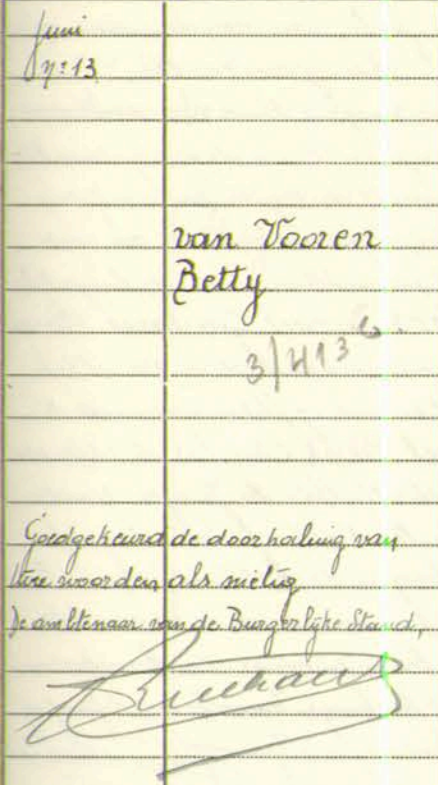 juni
nº 13
van Vooren
Betty
3/4136.
Goedgekeurd de doorhaling van
twee woorden als nietig
De ambtenaar van de Burgerlijke Stand,